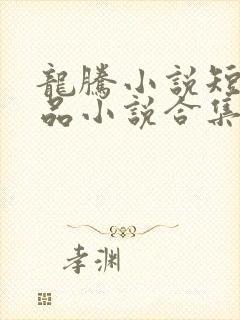 龍騰小說短
品小說合集
孝渊